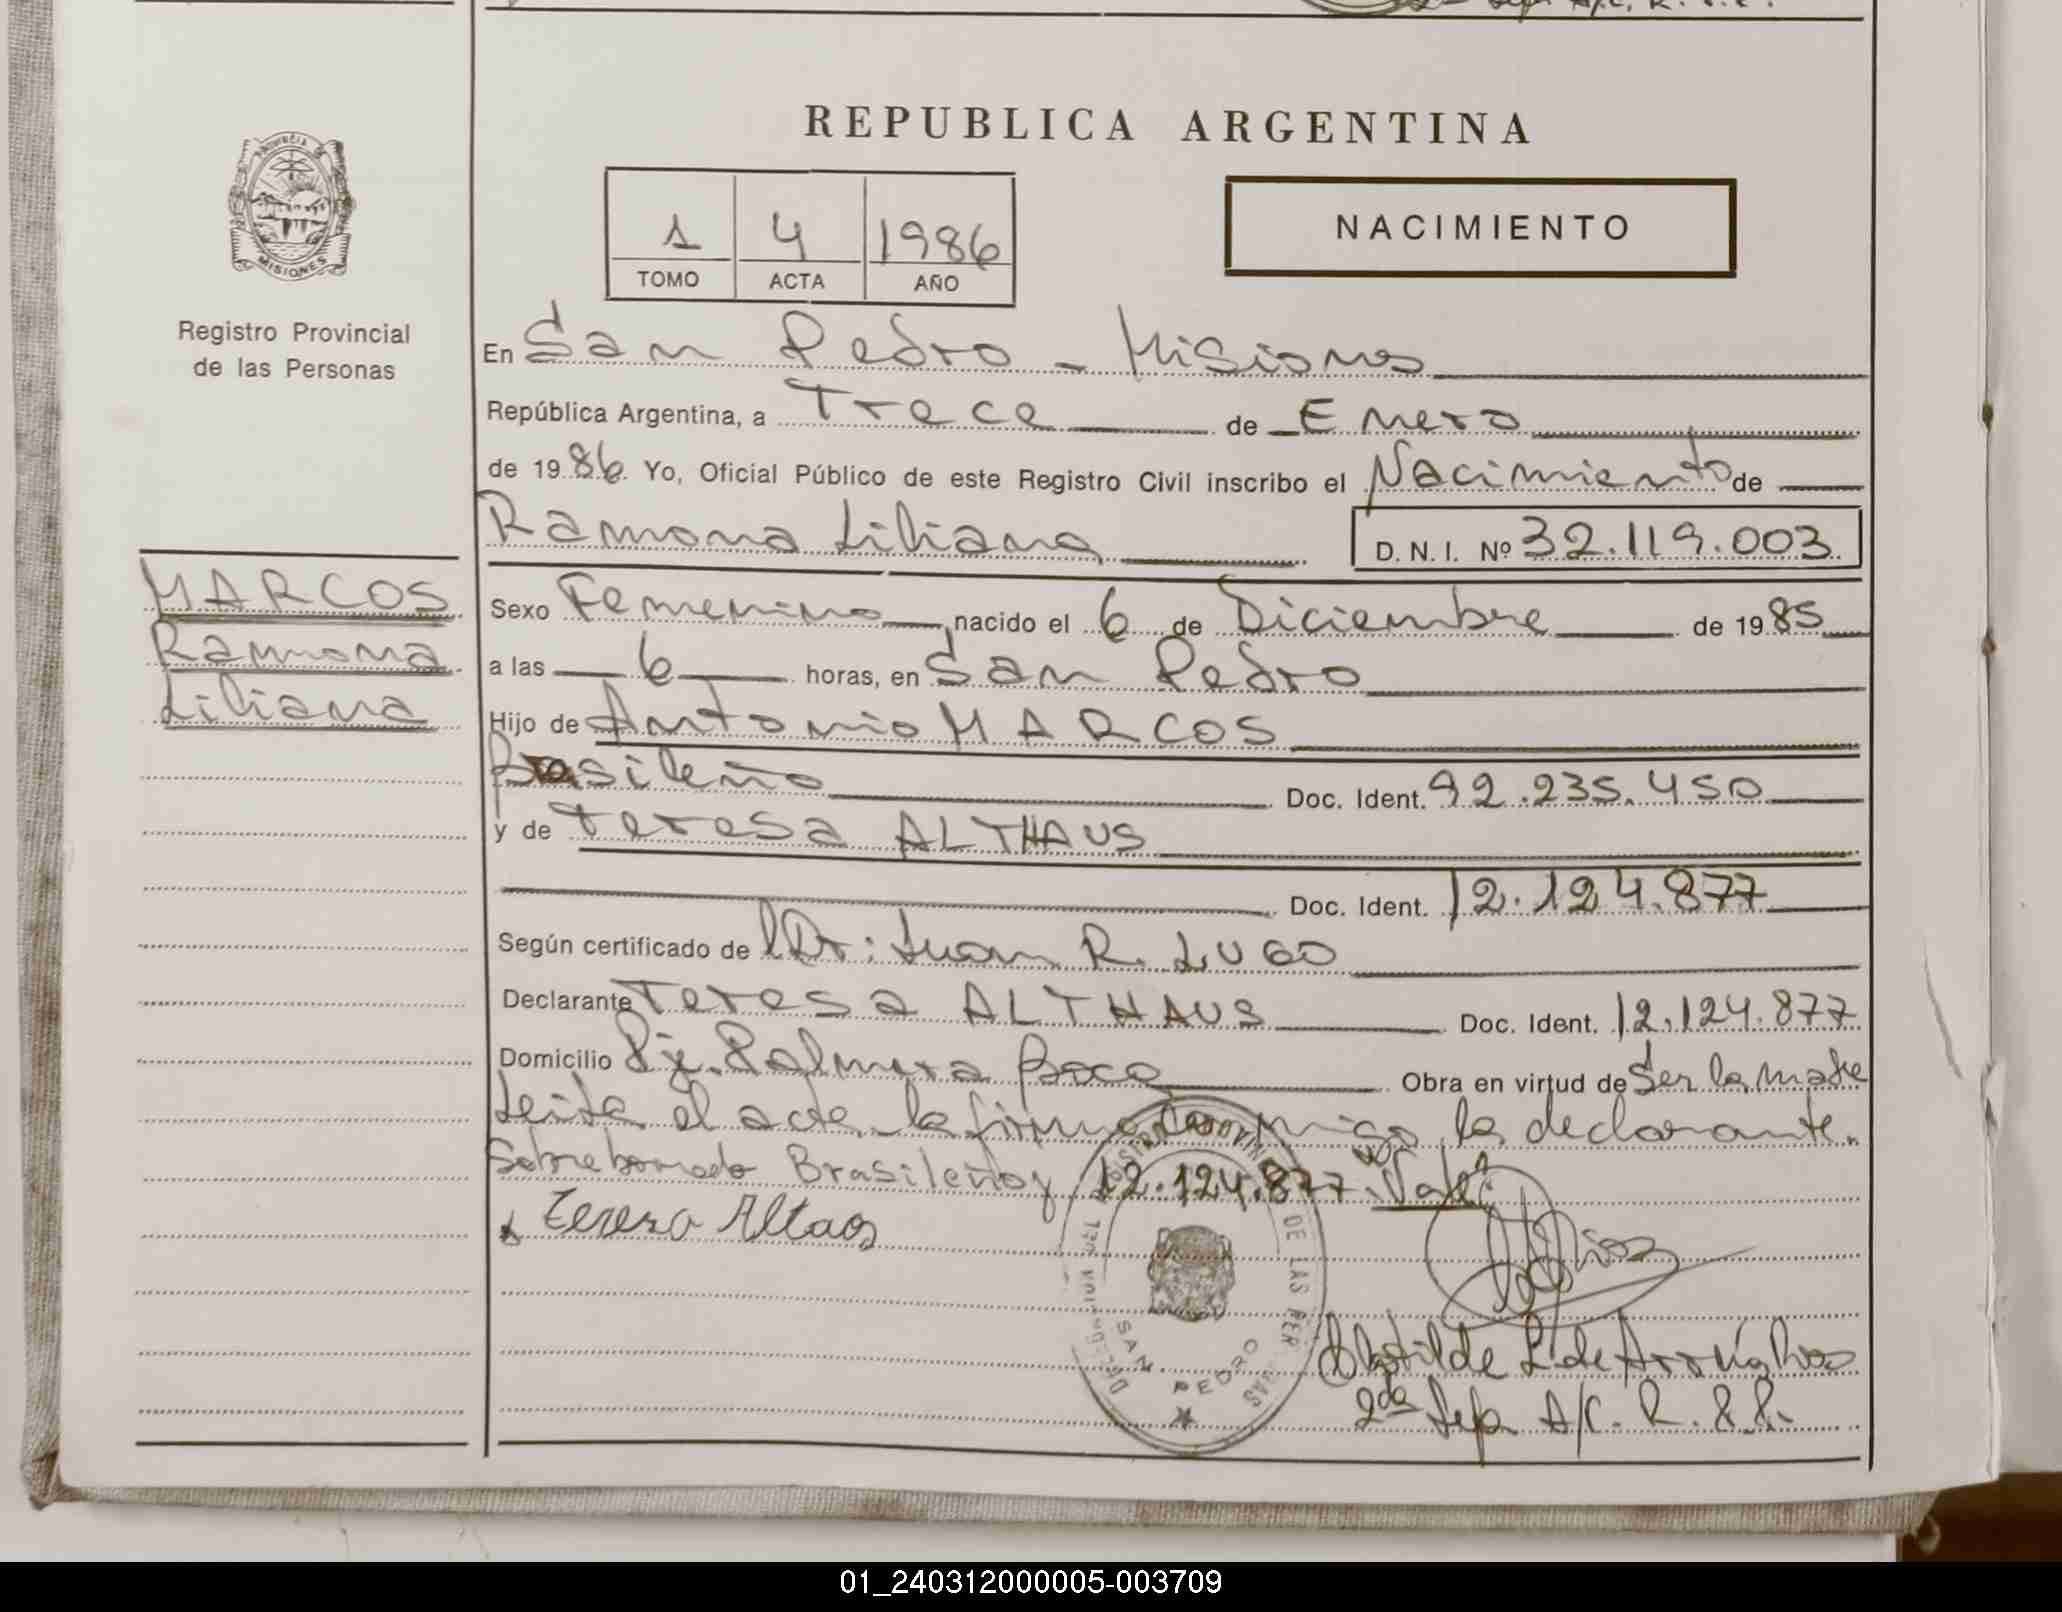 REPUBLICA ARGENTINA
PROVINCIA DE
MISIONES
Registro Provincial
de las Personas
1 4 1986
TOMO ACTA AÑO
NACIMIENTO
En San Pedro - Misiones
República Argentina, a Trece de Enero
de 1986. Yo, Oficial Público de este Registro Civil inscribo el Nacimiento de
Ramona Liliana D.N.I. Nº 32.119.003
MARCOS
Ramona
Liliana
Sexo Femenino nacido el 6 de Diciembre de 1985
a las 6 horas, en San Pedro
Hijo de Antonio MARCOS
Brasileño Doc. Ident. 92.235.450
y de Teresa ALTHAUS
Doc. Ident. 12.124.877
Según certificado de Dr: Juan R. LUGO
Declarante Teresa ALTHAUS Doc. Ident. 12.124.877
Domicilio Pje. Palmera Boca Obra en virtud de Ser la madre
Leida el acta la firma conmigo la declarante.
Sobreborrado Brasileño y 12.124.877 Vale
Tereza Altaos
DE LAS PER
SAN PEDRO
Clotilde L. de Rios
2da A/C. R.
01_240312000005-003709